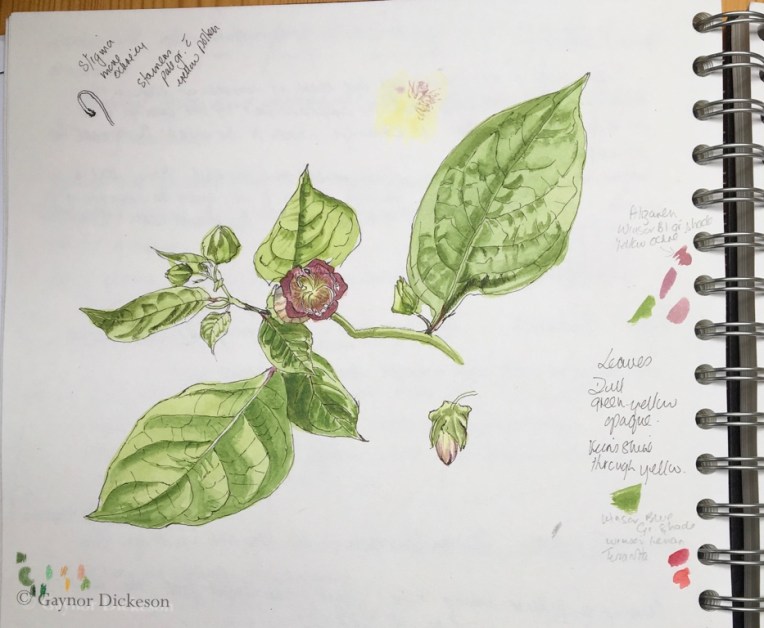 Stigma
more
stamens
pale gr. c̄
yellow pollen
Alizarin
Winsor Bl gr shade
Yellow ochre
Leaves
Dull
green-yellow
opaque.
Veins Shine
through yellow.
Winsor Blue
Gr Shade
Winsor Lemon
© Gaynor Dickeson